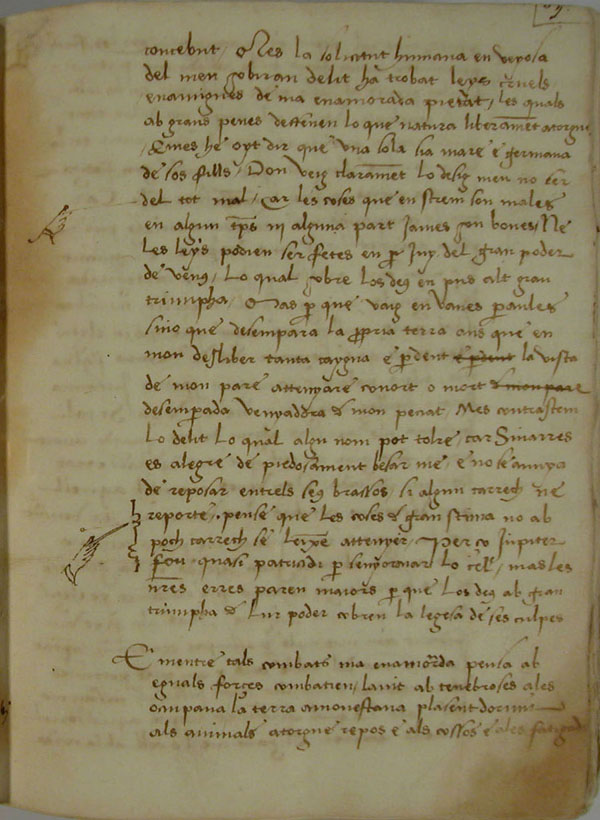 concebut / Mes la solicitut humana en veyosa
del meu sobiran delit ha trobat leys cruels
enamigues de ma enamorada pietat, les quals
ab grans penes deffenen lo que natura liberament atorgue
/ E mes he oyt dir que una sola sia mare e germana
de sos fills / Don veig clarament lo desig meu no ser
del tot mal / Car les coses que en strem son males
en algun tps ni alguna part james son bones / Ne
les leys podien ser fetes en p̄ Iuy del gran poder
de venus / Lo qual sobre los deus en pus alt grau
triumpha / Mas p que vaig en vanes paraules
sino que desempara la propria terra ans que en
mon desliber tanta caygua e pdent la vista
de mon pare attenyare conort o mort
desemparada venyaddra d mon peccat. Mes contrastem
Lo delit Lo qual algu nom pot tolre / car Sinarres
es alegre de piedosament besar me / e nos e anuya
de reposar entrels seus brassos / si algun carrech ne
reporte / pense que les coses d gran stima no ab
poch carrech se leixen attenyer / Per co Jupiter
fou quasi patricidi p senyorejar lo cel / mas les
nres erres paren majors p que Los deus ab gran
triumpha d Lur poder cobren la legesa de ses culpes
E mentre tals combats ma enamorda pensa ab
eguals forces combatien / la nit ab tenebroses ales
ocupana la terra amonestana plasent dormir
als animals atorgue repos e als cossos e ales fatigad